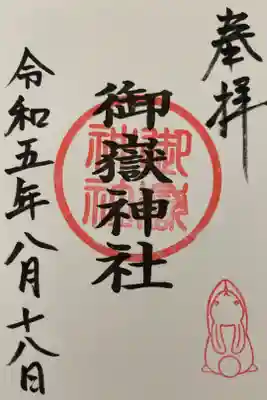 奉拝
御嶽神社
御嶽神社
令和五年八月十八日